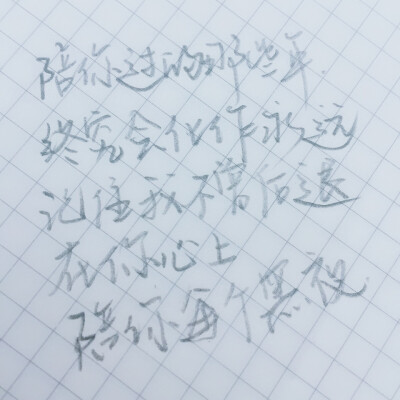 陪你过的那些年
终究会化作永远
记住我不曾后退
在你心上
陪你每个黑夜